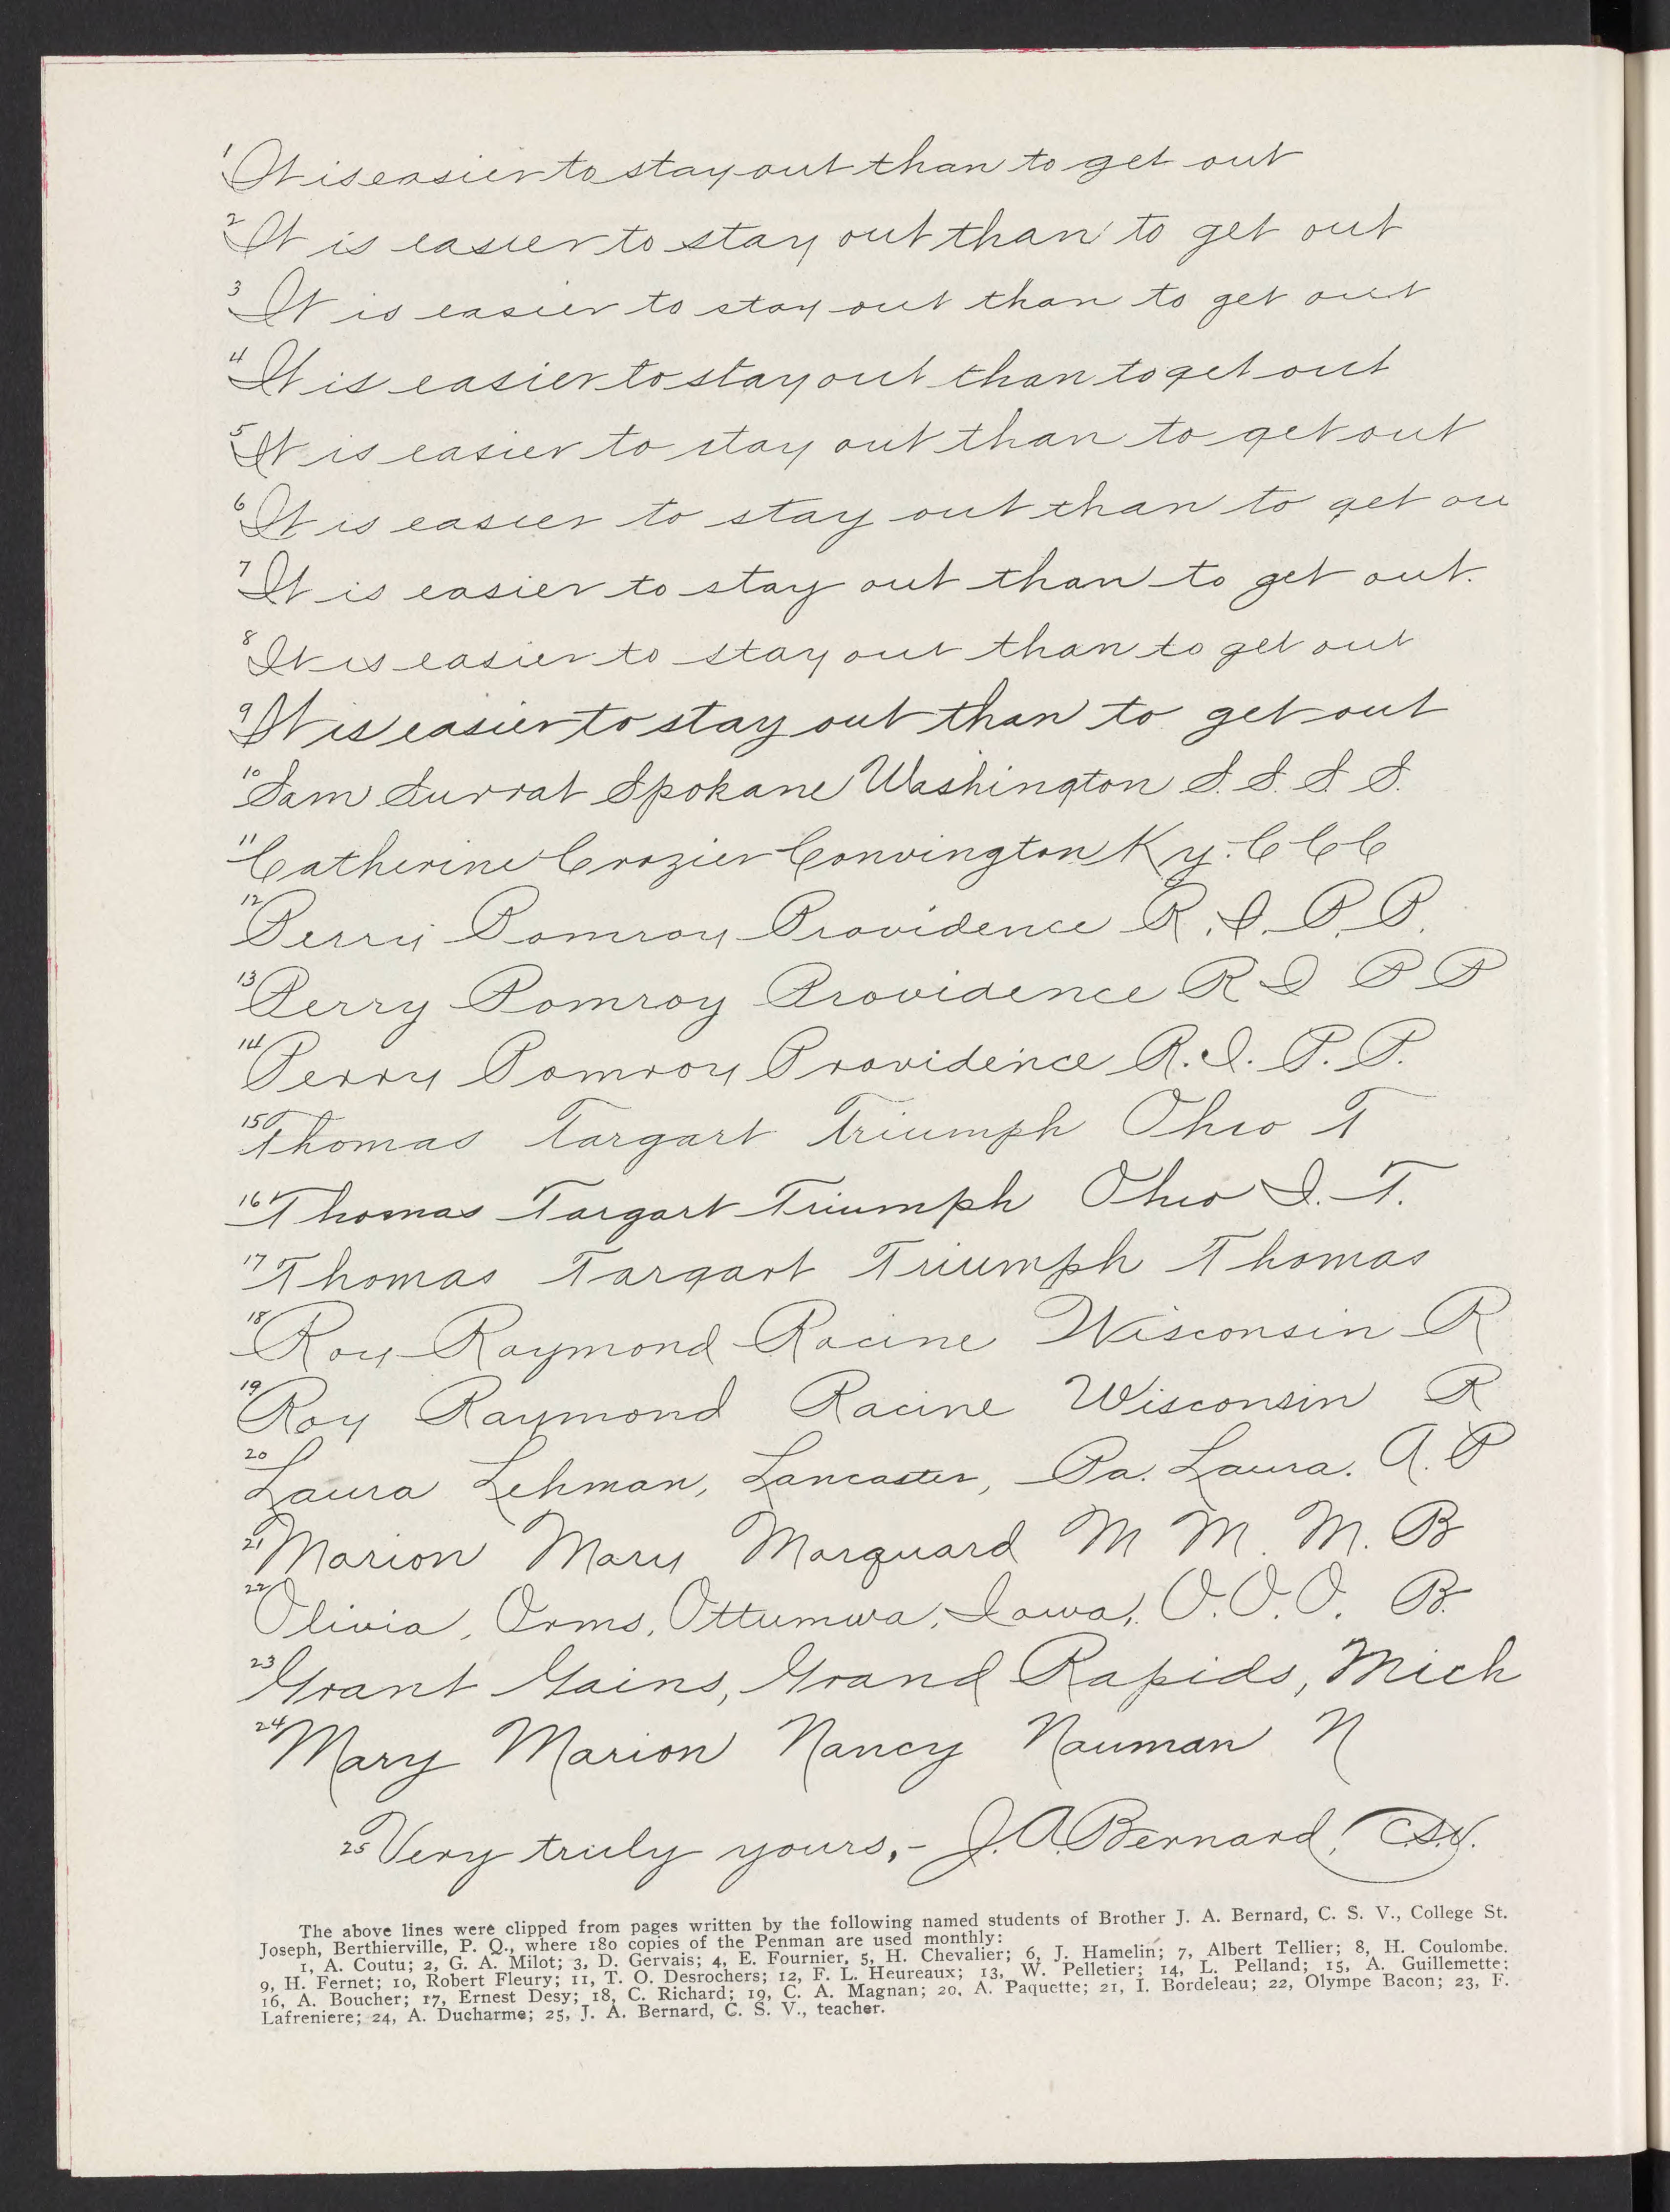 1 It is easier to stay out than to get out
2 It is easier to stay out than to get out
3 It is easier to stay out than to get out
4 It is easier to stay out than to get out
5 It is easier to stay out than to get out
6 It is easier to stay out than to get ou
7 It is easier to stay out than to get out.
8 It is easier to stay out than to get out
9 It is easier to stay out than to get out
10 Sam Surrat Spokane Washington S. S. S. S.
11 Catherine Crozier Convington Ky. C C C
12 Perry Pomroy Providence R. I. P. P.
13 Perry Pomroy Providence R I P P
14 Perry Pomroy Providence R. I. P. P.
15 Thomas Targart Triumph Ohio T
16 Thomas Targart Triumph Ohio I. T.
17 Thomas Targart Triumph Thomas
18 Roy Raymond Racine Wisconsin R
19 Roy Raymond Racine Wisconsin R
20 Laura Lehman, Lancaster, Pa. Laura. A. P
21 Marion Mary Marquard M M. M. B
22 Olivia, Orms, Ottumwa, Iowa, O. O. O. B.
23 Grant Gains, Grand Rapids, Mich
24 Mary Marion Nancy Nauman N
25 Very truly yours,- J. A. Bernard, C.S.V.
The above lines were clipped from pages written by the following named students of Brother J. A. Bernard, C. S. V., College St.
Joseph, Berthierville, P. Q., where 180 copies of the Penman are used monthly:
1, A. Coutu; 2, G. A. Milot; 3, D. Gervais; 4, E. Fournier, 5, H. Chevalier; 6, J. Hamelin; 7, Albert Tellier; 8, H. Coulombe.
9, H. Fernet; 10, Robert Fleury; 11, T. O. Desrochers; 12, F. L. Heureaux; 13, W. Pelletier; 14, L. Pelland; 15, A. Guillemette;
16, A. Boucher; 17, Ernest Desy; 18, C. Richard; 19, C. A. Magnan; 20, A. Paquette; 21, I. Bordeleau; 22, Olympe Bacon; 23, F.
Lafreniere; 24, A. Ducharme; 25, J. A. Bernard, C. S. V., teacher.